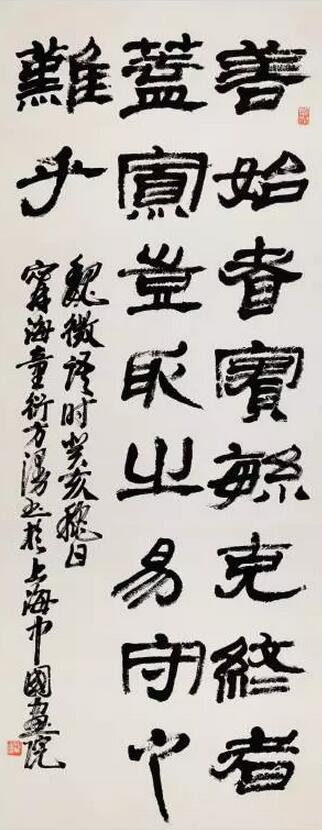 善始者實緐克終者
蓋寡豈取之易守之
難乎
魏徵語时癸亥穐日
甯海童衍方漫书於上海中國畫院